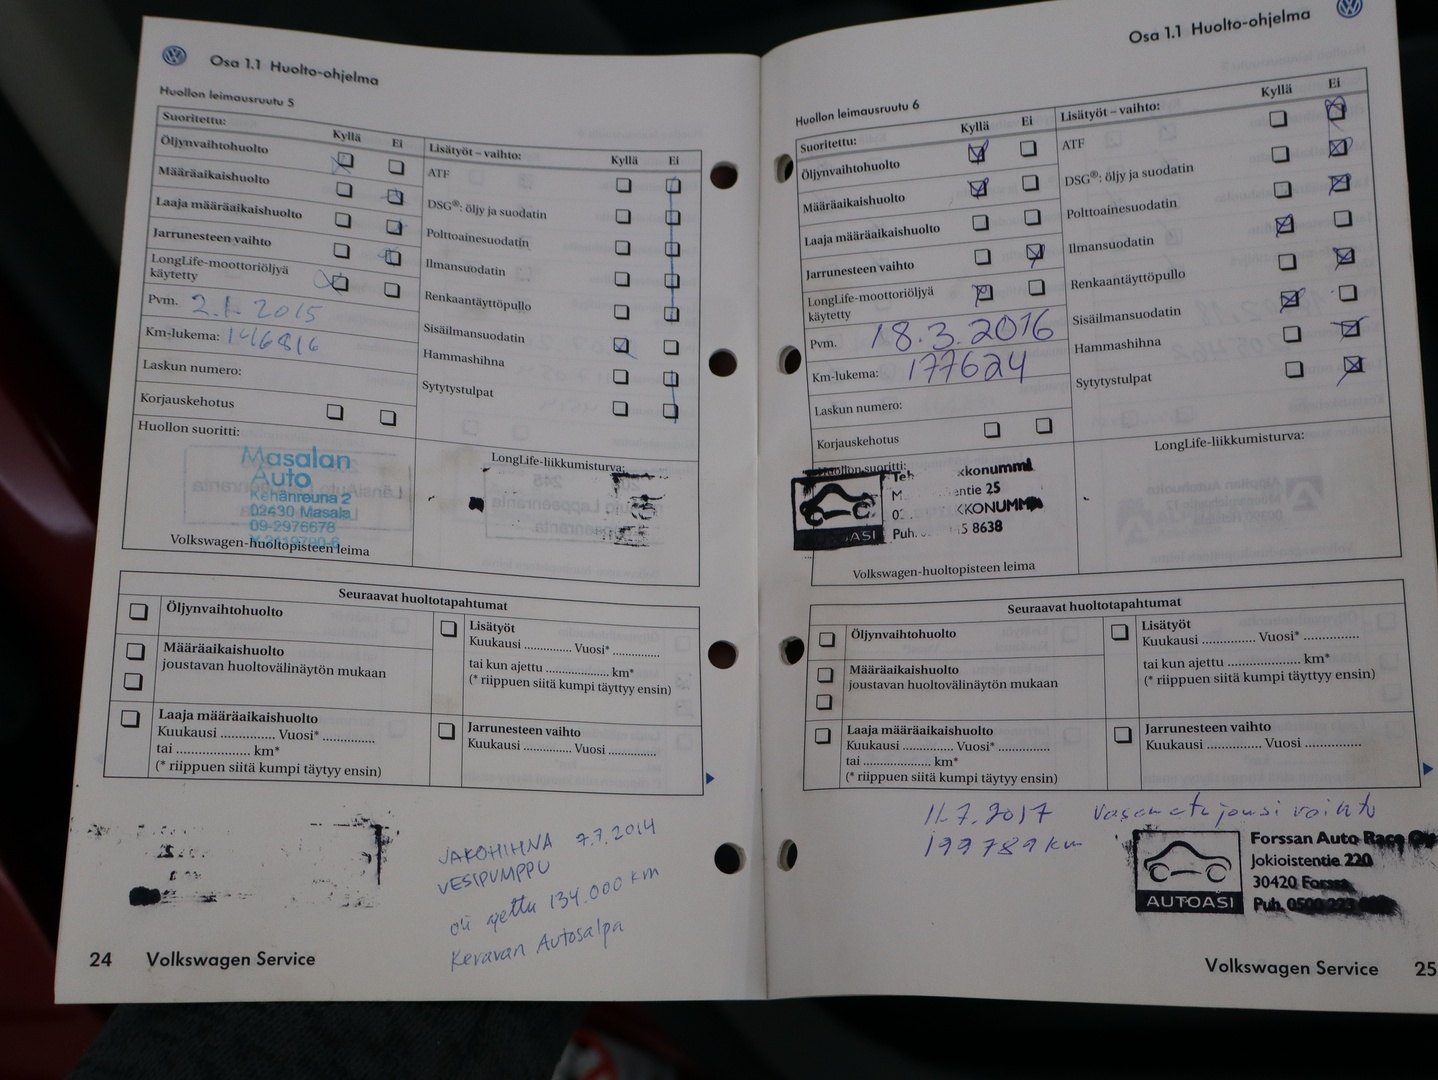 Osa 1.1 Huolto-ohjelma
Huollon leimausruutu 5
Suoritettu:
Kyllä Ei
Öljynvaihtohuolto
Määräaikaishuolto
Laaja määräaikaishuolto
Jarrunesteen vaihto
LongLife-moottoriöljyä
käytetty
Pvm. 2.1.2015
Km-lukema: 146816
Laskun numero:
Korjauskehotus
Lisätyöt – vaihto:
Kyllä Ei
ATF
DSG®: öljy ja suodatin
Polttoainesuodatin
Ilmansuodatin
Renkaantäyttöpullo
Sisäilmansuodatin
Hammashihna
Sytytystulpat
Huollon suoritti:
Masalan
Auto
Kehänreuna 2
02430 Masala
09-2976678
Volkswagen-huoltopisteen leima
LongLife-liikkumisturva:
Seuraavat huoltotapahtumat
Öljynvaihtohuolto
Määräaikaishuolto
joustavan huoltovälinäytön mukaan
Laaja määräaikaishuolto
Kuukausi .............. Vuosi* ..............
tai .................... km*
(* riippuen siitä kumpi täytyy ensin)
Lisätyöt
Kuukausi ............. Vuosi* .............
tai kun ajettu .................... km*
(* riippuen siitä kumpi täyttyy ensin)
Jarrunesteen vaihto
Kuukausi ............. Vuosi .............
JAKOHIHNA 7.7.2014
VESIPUMPPU
oli ajettu 134.000 km
Keravan Autosalpa
24 Volkswagen Service
Osa 1.1 Huolto-ohjelma
Huollon leimausruutu 6
Suoritettu:
Kyllä Ei
Öljynvaihtohuolto
Määräaikaishuolto
Laaja määräaikaishuolto
Jarrunesteen vaihto
LongLife-moottoriöljyä
käytetty
Pvm. 18.3.2016
Km-lukema: 177624
Laskun numero:
Korjauskehotus
Lisätyöt – vaihto:
Kyllä Ei
ATF
DSG®: öljy ja suodatin
Polttoainesuodatin
Ilmansuodatin
Renkaantäyttöpullo
Sisäilmansuodatin
Hammashihna
Sytytystulpat
Huollon suoritti:
25
Puh. 8638
Volkswagen-huoltopisteen leima
LongLife-liikkumisturva:
Seuraavat huoltotapahtumat
Öljynvaihtohuolto
Määräaikaishuolto
joustavan huoltovälinäytön mukaan
Laaja määräaikaishuolto
Kuukausi ............. Vuosi* .............
tai .................... km*
(* riippuen siitä kumpi täytyy ensin)
Lisätyöt
Kuukausi ............. Vuosi* .............
tai kun ajettu .................... km*
(* riippuen siitä kumpi täyttyy ensin)
Jarrunesteen vaihto
Kuukausi ............. Vuosi .............
11.7.2017 vasen etujousi vaihto
199789 km
AUTOASI
Forssan Auto Race
Jokioistentie 220
30420 Forssa
Puh. 0500 223
Volkswagen Service 25